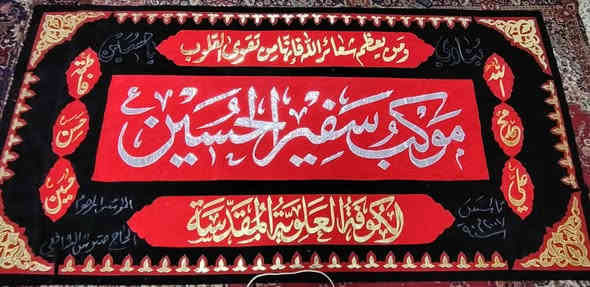 ومن يعظم شعائر الله فإنها من تقوى القلوب
ينادي
يا حسين
الله
محمد
علي
موكب سفير الحسين ع
فاطمة
حسن
حسين
الكوفة العلوية المقدسة
الحاج